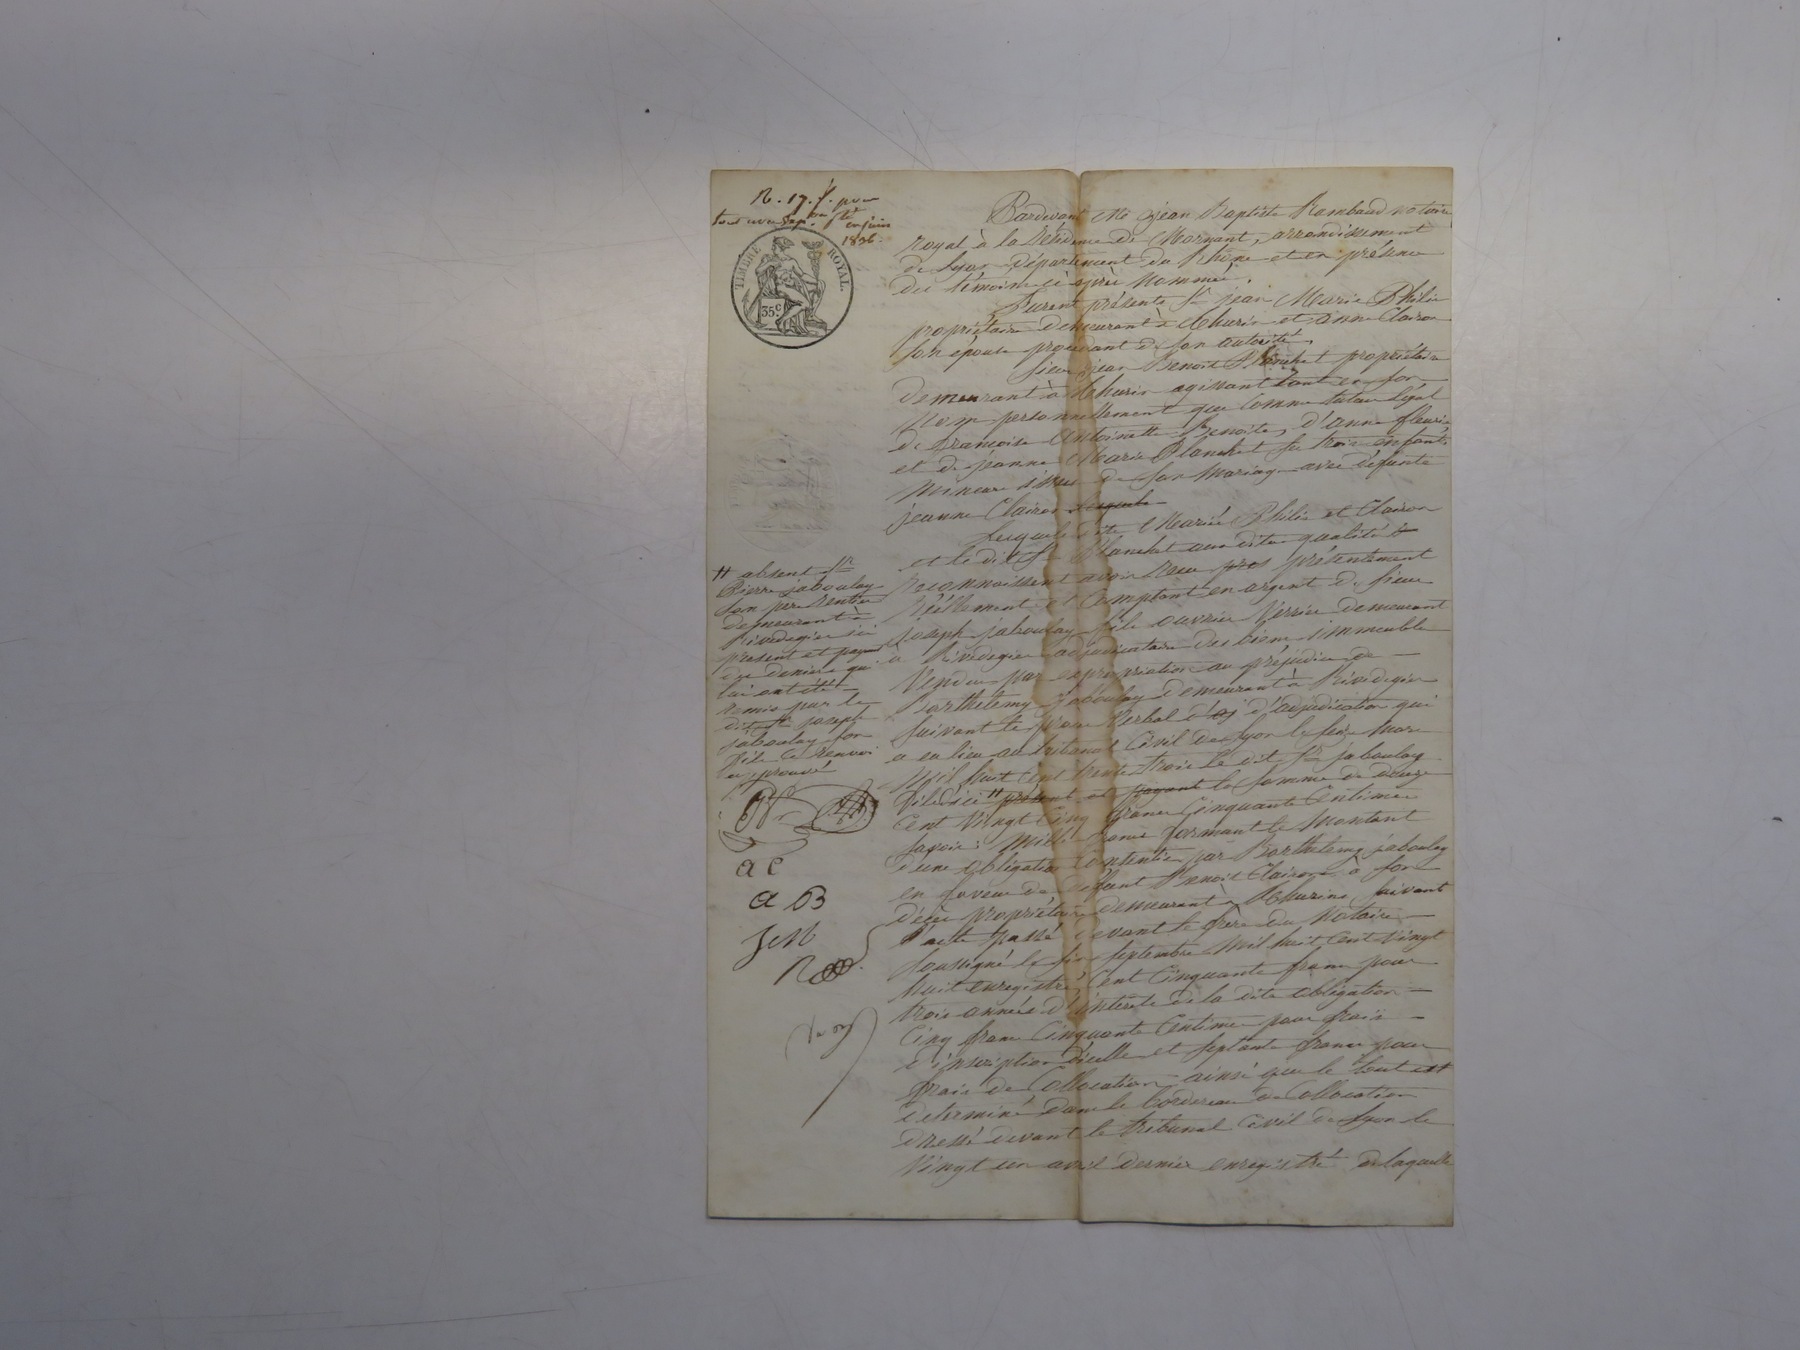 R. 17. f. pour
1836.
TIMBRE ROYAL.
35c
Pardevant Me jean Baptiste Rambaud notaire
royal à la résidence de Mornant, arrondissement
de Lyon département du Rhône et en présence
des témoins ci après nommés.
Furent présents Sr jean Marie Philis
propriétaire demeurant à Thurin et anne Clairon
son épouse procédant de son autorité.
sieur jean Benoit Planchet propriétaire
demeurant à Thurin agissant tant en son
Nom personnellement que Comme tuteur légal
de françoise Antoinette Benoite, d'anne fleurie
et de jeanne Marie Planchet ses trois enfants
Mineurs issus de son Mariage avec défunte
jeanne Clairon
Lesquels dits Mariés Philis et Clairon
et le dit Sr Planchet aux dites qualités
reconnaissent avoir reçu présentement
réellement et Comptant en argent de sieur
joseph jaboulay fils ouvrier Verrier demeurant
à Rivedegier adjudicataire des biens immeubles
Vendus par expropriation au préjudice de
Barthelemy jaboulay demeurant à Rivedegier
suivant le procès Verbal d'adjudication qui
a eu lieu au tribunal Civil de Lyon le seize Mars
Mil huit Cent trente trois le dit Sr jaboulay
fils ici # présent et payant la somme de douze
Cent Vingt Cinq francs Cinquante Centimes
savoir: Mille francs formant le Montant
d'une obligation Consentie par Barthelemy jaboulay
en faveur de défunt Benoit Clairon à son
décès propriétaire demeurant à Thurins suivant
l'acte passé devant le frère du Notaire
soussigné le six septembre Mil huit Cent Vingt
huit enregistré, Cent Cinquante francs pour
trois années d'intérêts de la dite obligation
Cinq francs Cinquante Centimes pour frais
d'inscription d'icelle et septante francs pour
frais de Collocation ainsi que le tout est
determiné dans le bordereau de Collocation
dressé devant le tribunal Civil de Lyon le
Vingt un avril dernier enregistré de laquelle
# absent Sr
Pierre jaboulay
son père rentier
demeurant à
Rivedegier ici
présent et payant
des deniers qui
lui ont été
remis par le
dit Sr joseph
jaboulay son
fils Ce renvoi
approuvé
a C
a B